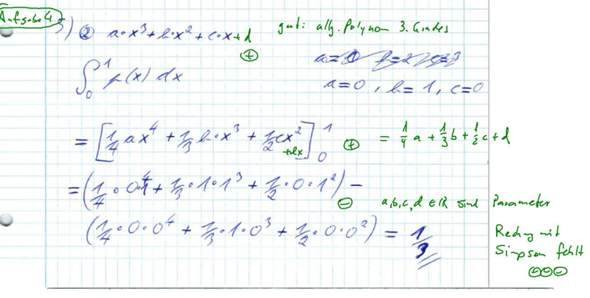 Aufgabe 4
3) @ a·x³+b·x²+c·x+d ⊕ gut: allg. Polynom 3. Grades
∫₀¹ p(x) dx a=0, b=1, c=0
= [1/4 ax⁴ + 1/3 b·x³ + 1/2 cx² +dx]₀¹ ⊕ = 1/4 a + 1/3 b + 1/2 c + d
= (1/4 · 0 · 1⁴ + 1/3 · 1 · 1³ + 1/2 · 0 · 1²) −
⊖ a,b,c,d ∈ ℝ sind Parameter
(1/4 · 0 · 0⁴ + 1/3 · 1 · 0³ + 1/2 · 0 · 0²) = 1/3
Rechng mit
Simpson fehlt
⊖⊖⊖